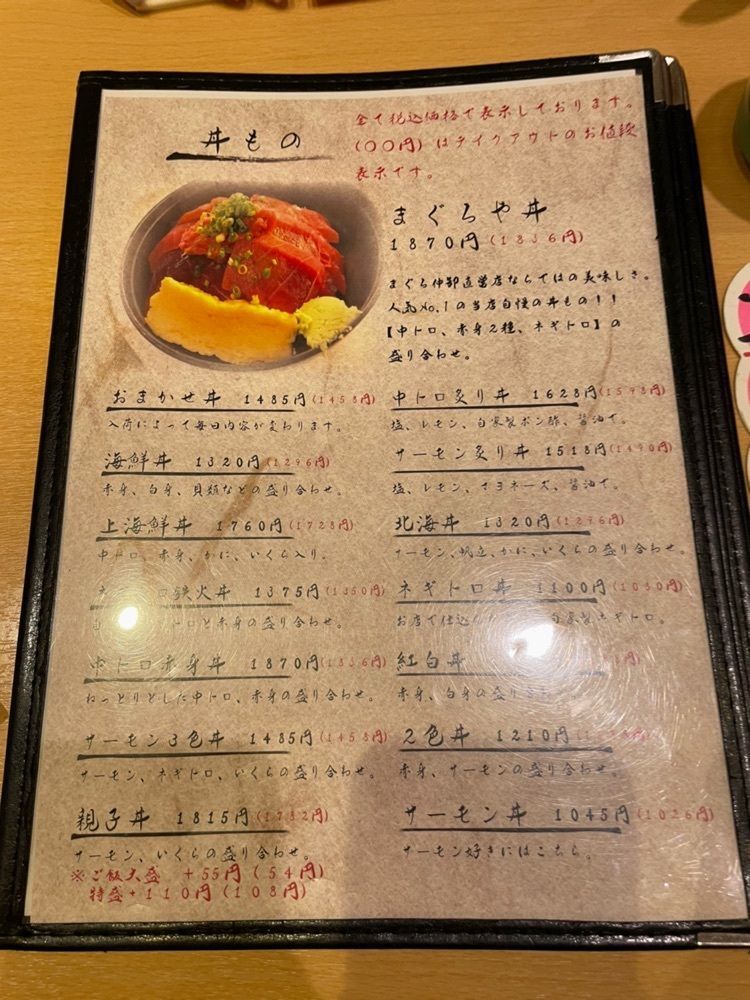 丼もの
全て税込価格で表示しております。
(〇〇円)はテイクアウトのお値段
表示です。
まぐろや丼
1870円(1836円)
まぐろ仲卸直営店ならではの美味しさ。
人気No.1の当店自慢の丼もの!!
【中トロ、赤身2種、ネギトロ】の
盛り合わせ。
おまかせ丼 1485円(1458円)
入荷によって毎日内容が変わります。
海鮮丼 1320円(1296円)
赤身、白身、貝類などの盛り合わせ。
上海鮮丼 1760円(1728円)
中トロ、赤身、かに、いくら入り。
鉄火丼 1375円(1350円)
トロと赤身の盛り合わせ。
中トロ赤身丼 1870円(1836円)
ねっとりとした中トロ、赤身の盛り合わせ。
サーモン3色丼 1485円(1458円)
サーモン、ネギトロ、いくらの盛り合わせ。
親子丼 1815円(1782円)
サーモン、いくらの盛り合わせ。
※ご飯大盛 +55円(54円)
特盛+110円(108円)
中トロ炙り丼 1628円(1598円)
塩、レモン、自家製ポン酢、醤油で。
サーモン炙り丼 1518円(1490円)
塩、レモン、マヨネーズ、醤油で。
北海丼 1320円(1296円)
サーモン、帆立、かに、いくらの盛り合わせ。
ネギトロ丼 1100円(1080円)
お店で仕込 自家製ネギトロ。
紅白丼
赤身、白身の盛り合わせ。
2色丼 1210円
赤身、サーモンの盛り合わせ。
サーモン丼 1045円(1026円)
サーモン好きにはこちら。